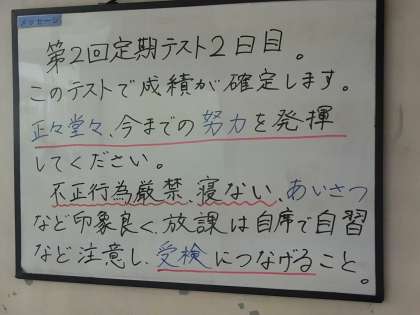 メッセージ
第2回定期テスト2日目。
このテストで成績が確定します。
正々堂々、今までの努力を発揮
してください。
不正行為厳禁、寝ない、あいさつ
など印象良く、放課は自席で自習
など注意し、受検につなげること。